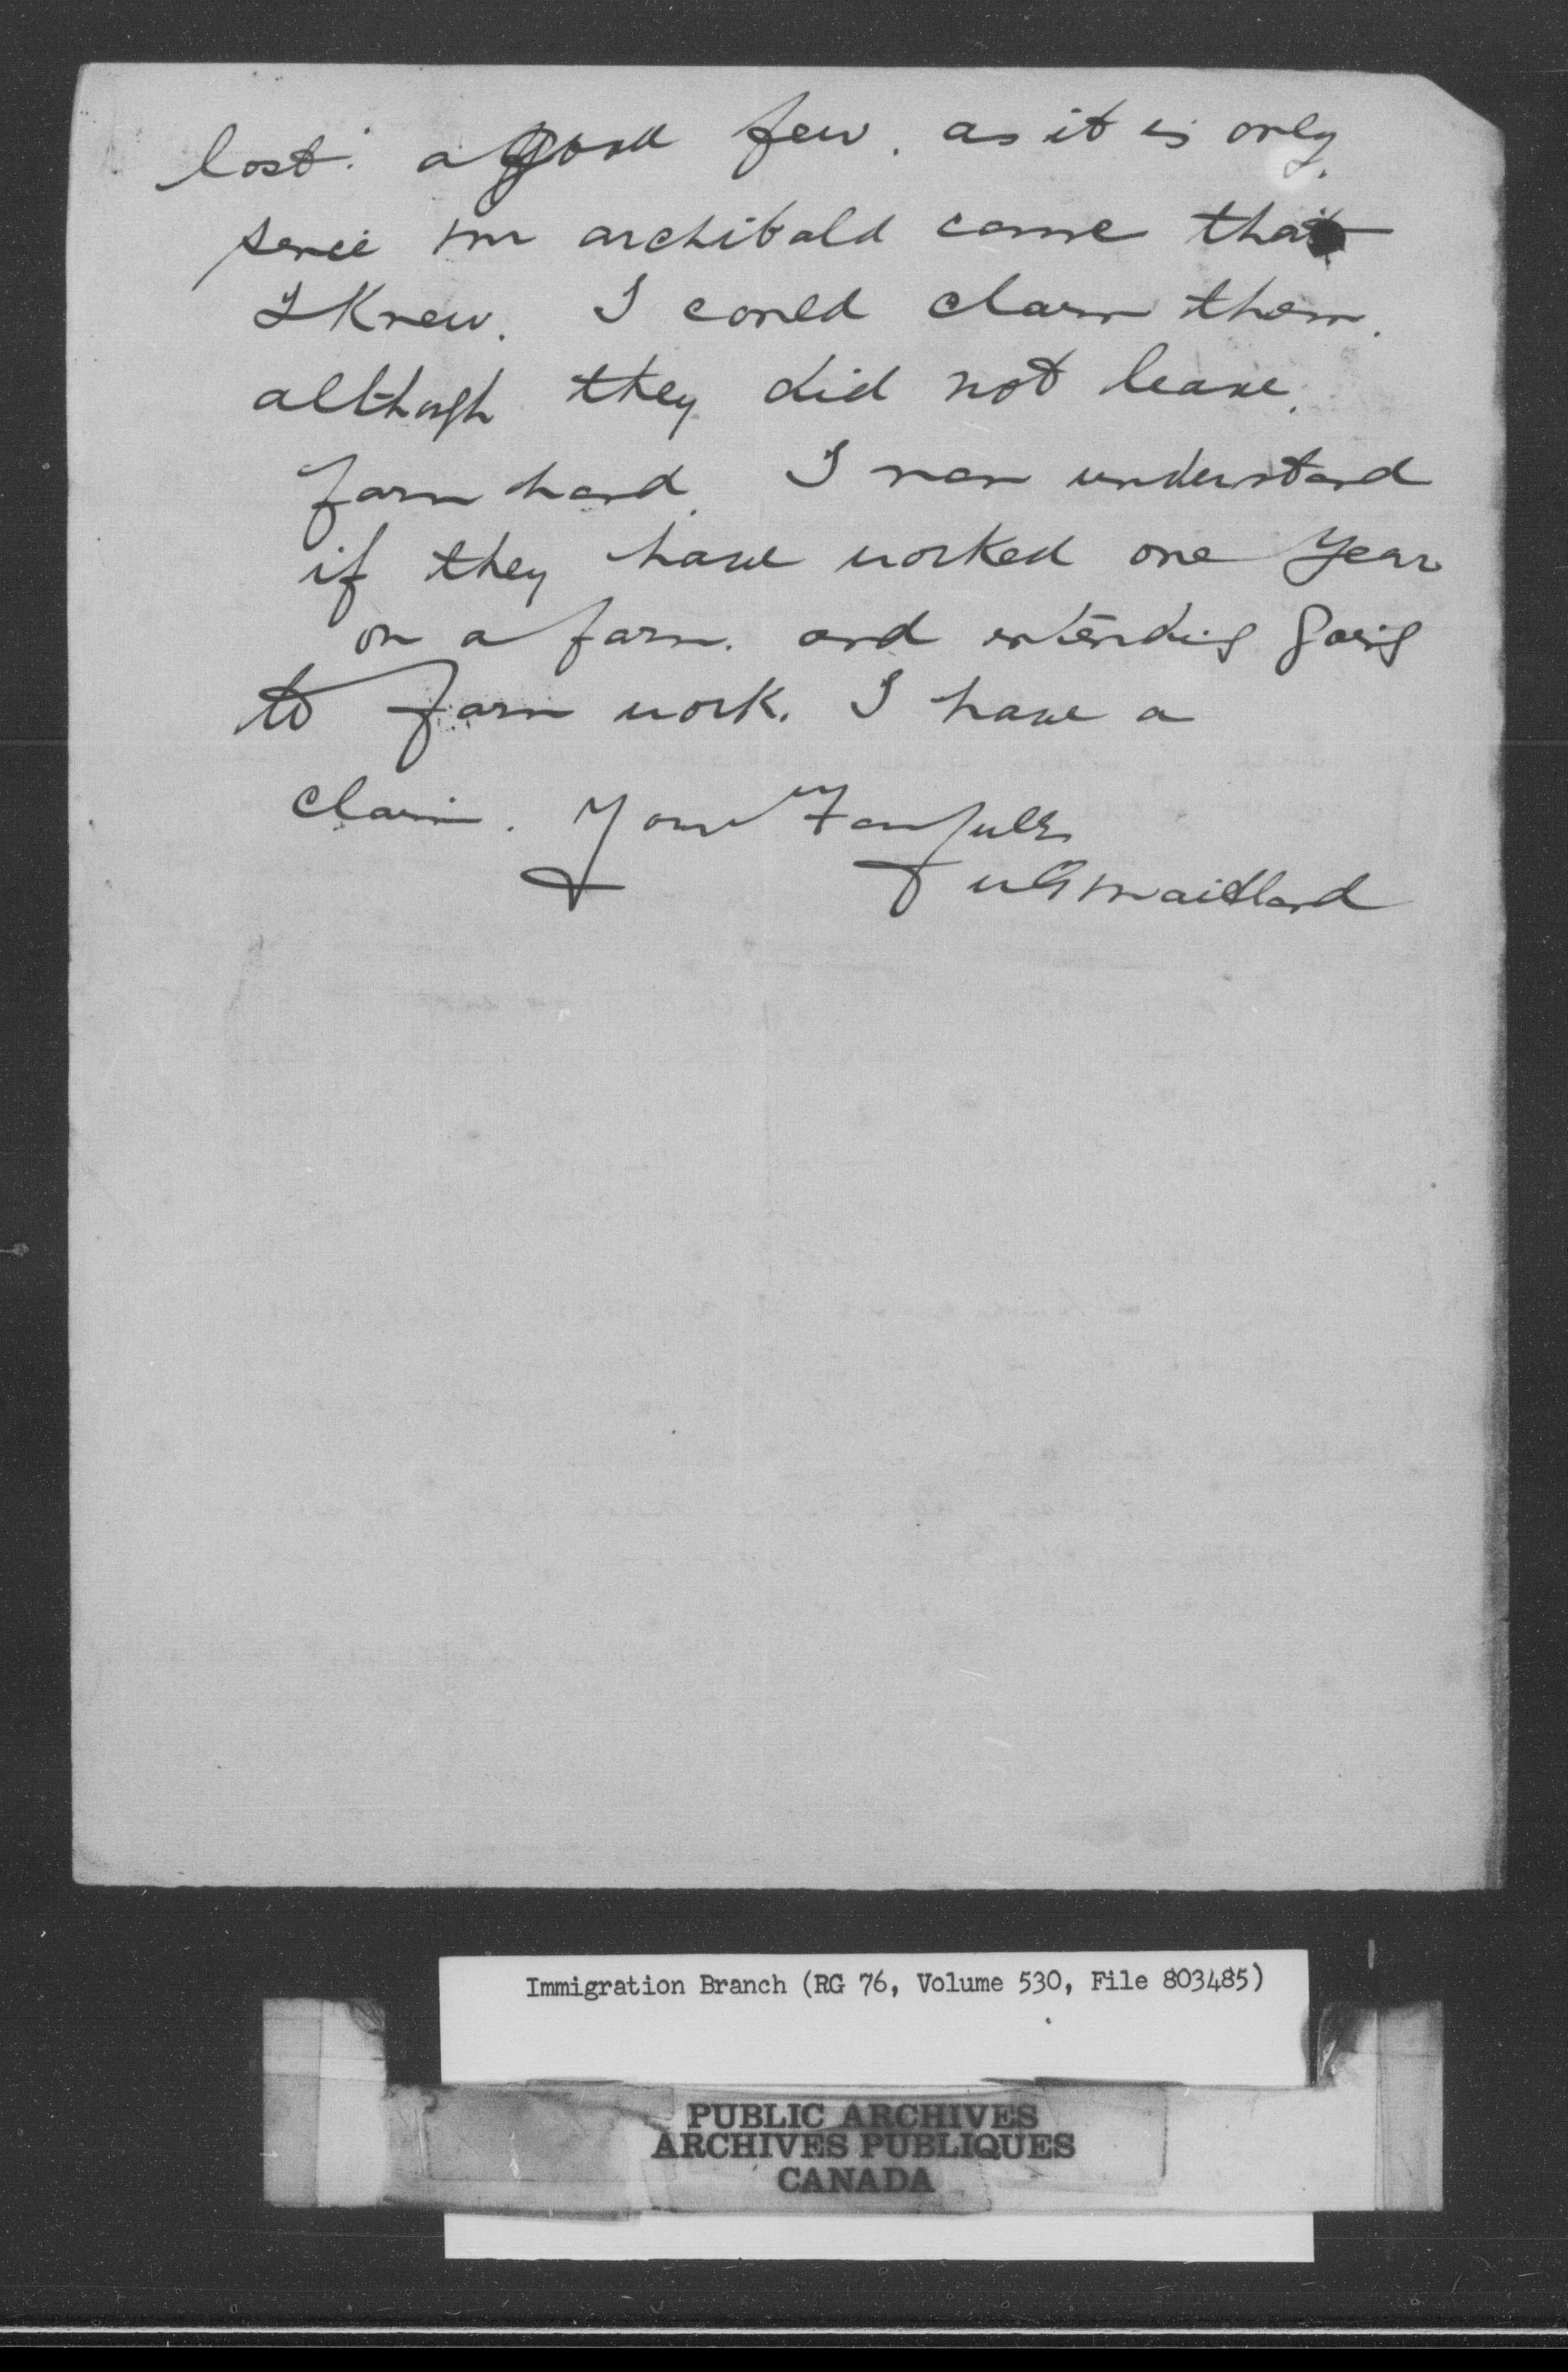 lost. a good few. as it is only
since Mr archibald came that
I Knew. I could claim them.
although they did not leave.
farm hand. I now understand
if they have worked one year
on a farm. and intending going
to farm work. I have a
claim. Yours Faithfully
W G Maitland
Immigration Branch (RG 76, Volume 530, File 803485)
PUBLIC ARCHIVES
ARCHIVES PUBLIQUES
CANADA